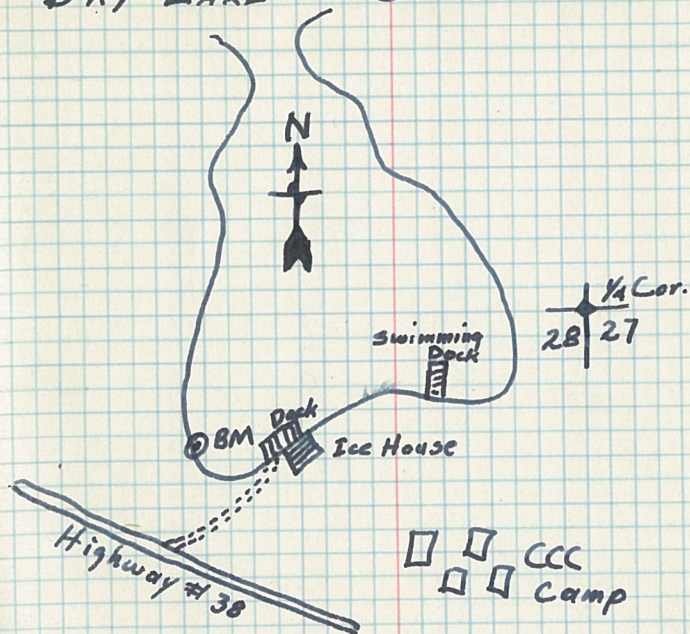 N
1/4 Cor.
28 27
Swimming
Dock
Dock
BM
Ice House
Highway # 38
CCC
Camp